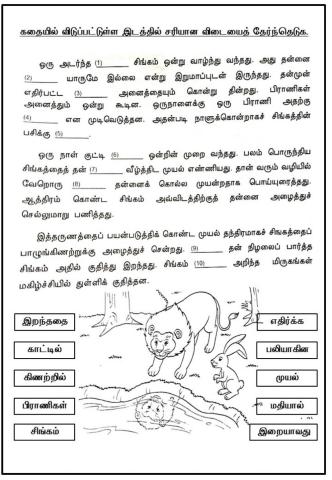 கதையில் விடுப்பட்டுள்ள இடத்தில் சரியான விடையைத் தேர்ந்தெடுக.
ஒரு அடர்ந்த (1) ______ சிங்கம் ஒன்று வாழ்ந்து வந்தது. அது தன்னை
(2) ______ யாருமே இல்லை என்று இறுமாப்புடன் இருந்தது. தன்முன்
எதிர்பட்ட (3) ______ அனைத்தையும் கொன்று தின்றது. பிராணிகள்
அனைத்தும் ஒன்று கூடின. ஒருநாளைக்கு ஒரு பிராணி அதற்கு
(4) ______ என முடிவெடுத்தன. அதன்படி நாளுக்கொன்றாகச் சிங்கத்தின்
பசிக்கு (5) ______.
ஒரு நாள் குட்டி (6) ______ ஒன்றின் முறை வந்தது. பலம் பொருந்திய
சிங்கத்தைத் தன் (7) ______ வீழ்த்திட முயல் எண்ணியது. தான் வரும் வழியில்
வேறொரு (8) ______ தன்னைக் கொல்ல முயன்றதாக பொய்யுரைத்தது.
ஆத்திரம் கொண்ட சிங்கம் அவ்விடத்திற்குத் தன்னை அழைத்துச்
செல்லுமாறு பணித்தது.
இத்தருணத்தைப் பயன்படுத்திக் கொண்ட முயல் தந்திரமாகச் சிங்கத்தைப்
பாழுங்கிணற்றுக்கு அழைத்துச் சென்றது. (9) ______ தன் நிழலைப் பார்த்த
சிங்கம் அதில் குதித்து இறந்தது. சிங்கம் (10) ______ அறிந்த மிருகங்கள்
மகிழ்ச்சியில் துள்ளிக் குதித்தன.
இறந்ததை
எதிர்க்க
காட்டில்
பலியாகின
கிணற்றில்
முயல்
பிராணிகள்
மதியால்
சிங்கம்
இறையாவது